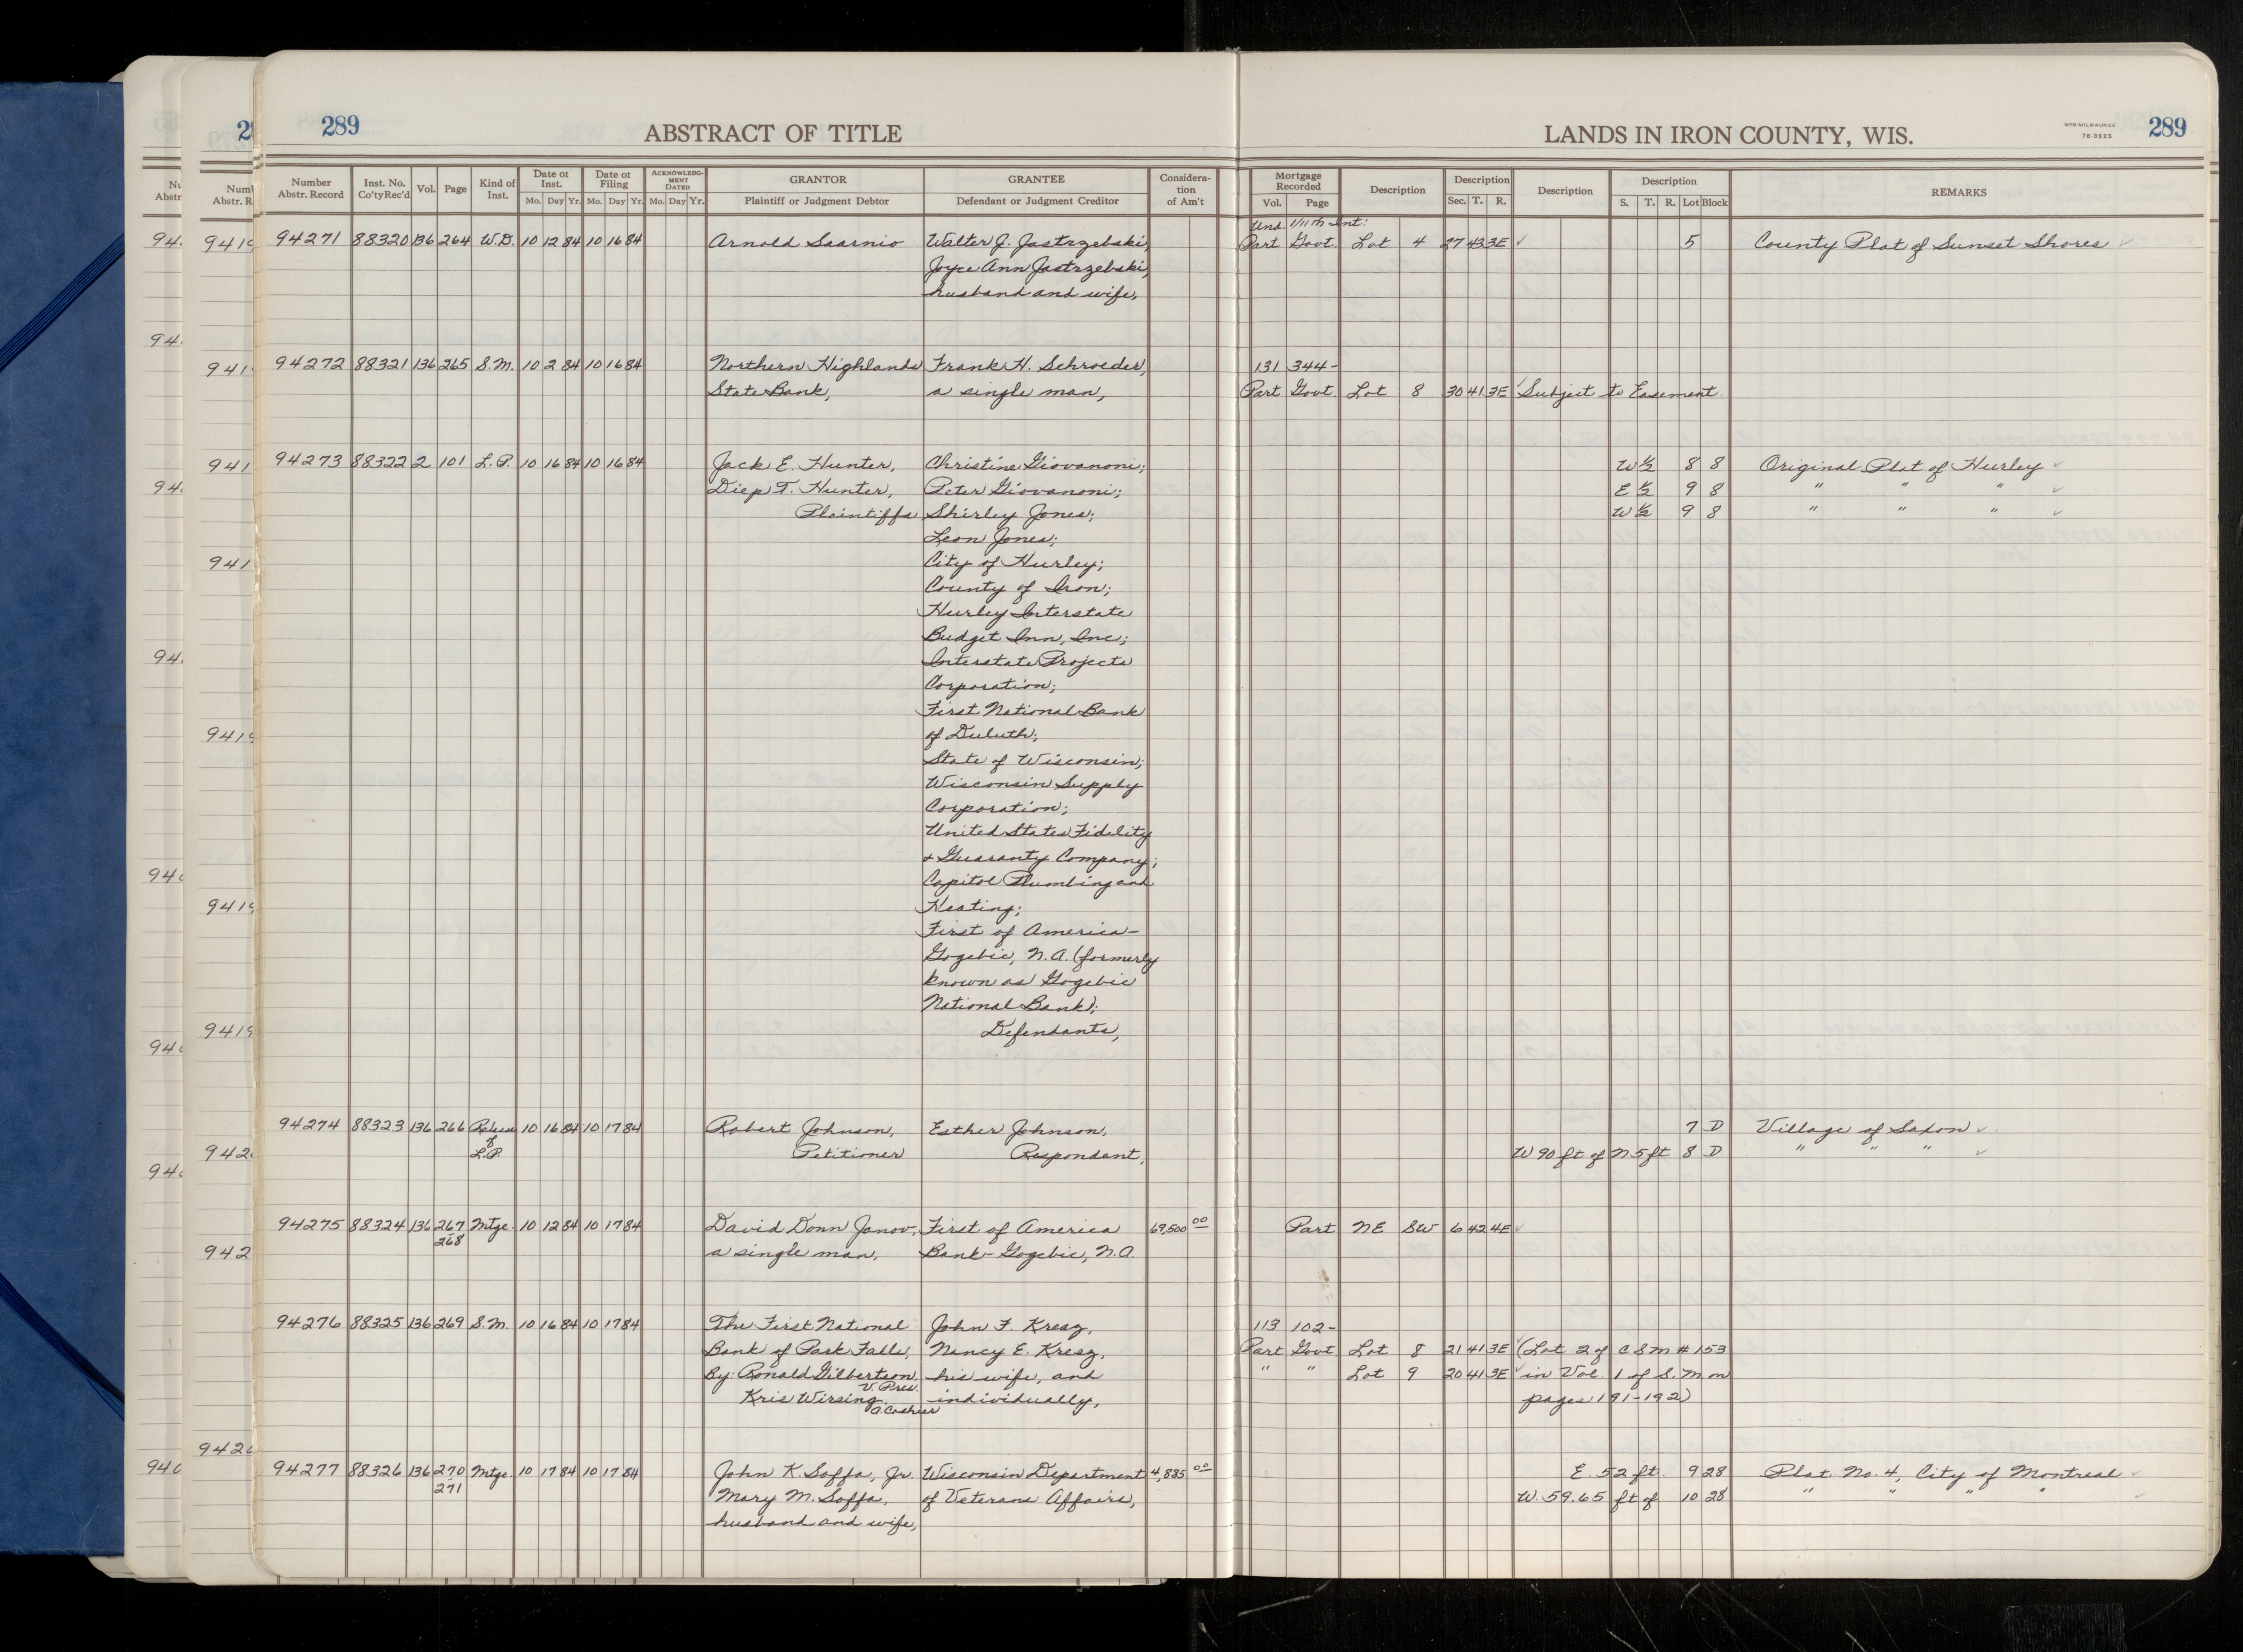 289 ABSTRACT OF TITLE LANDS IN IRON COUNTY, WIS. WPB-MILWAUKEE 78-3525 289
Number Abstr. Record Inst. No. Co'ty Rec'd Vol. Page Kind of Inst. Date of Inst. Mo. Day Yr. Date of Filing Mo. Day Yr. ACKNOWLEDGMENT DATED Mo. Day Yr. GRANTOR Plaintiff or Judgment Debtor GRANTEE Defendant or Judgment Creditor Consideration of Am't Mortgage Recorded Vol. Page Description Description Sec. T. R. Description Description S. T. R. Lot Block REMARKS
Und. 1/11th Int:
94271 88320 136 264 W.D. 10 12 84 10 16 84 Arnold Saarnio Walter J. Jastrzebski, Part Govt. Lot 4 27 43 3E ✓ 5 County Plat of Sunset Shores ✓
Joyce Ann Jastrzebski,
husband and wife,
94272 88321 136 265 S.M. 10 2 84 10 16 84 Northern Highlands Frank H. Schroeder, 131 344-
State Bank, a single man, Part Govt. Lot 8 30 41 3E ✓ Subject to Easement.
94273 88322 2 101 L.P. 10 16 84 10 16 84 Jack E. Hunter, Christine Giovanoni; W 1/2 8 8 Original Plat of Hurley ✓
Diep T. Hunter, Peter Giovanoni; E 1/2 9 8 " " " ✓
Plaintiffs Shirley Jones; W 1/2 9 8 " " " ✓
Leon Jones;
City of Hurley;
County of Iron;
Hurley Interstate
Budget Inn, Inc;
Interstate Projects
Corporation;
First National Bank
of Duluth;
State of Wisconsin;
Wisconsin Supply
Corporation;
United States Fidelity
& Guaranty Company;
Capitol Plumbing and
Heating;
First of America-
Gogebic, N.A. (formerly
known as Gogebic
National Bank);
Defendants,
94274 88323 136 266 Release of L.P. 10 16 84 10 17 84 Robert Johnson, Esther Johnson, 7 D Village of Saxon ✓
Petitioner Respondant, W 90 ft of N 5 ft 8 D " " " ✓
94275 88324 136 267-268 Mtge. 10 12 84 10 17 84 David Donn Janov, First of America 69,500 00 Part NE SW 6 42 4E ✓
a single man, Bank-Gogebic, N.A.
94276 88325 136 269 S.M. 10 16 84 10 17 84 The First National John F. Kresz, 113 102-
Bank of Park Falls, Nancy E. Kresz, Part Govt Lot 8 21 41 3E ✓ (Lot 2 of C S M # 153
By: Ronald Gilbertson, V. Pres. his wife, and " " Lot 9 20 41 3E ✓ in Vol. 1 of S.M on
Kris Wirsing, A Cashier individually, pages 191-192)
94277 88326 136 270-271 Mtge. 10 17 84 10 17 84 John K. Soffa, Jr. Wisconsin Department 4,885 00 E. 52 ft. 9 28 Plat. No. 4, City of Montreal ✓
Mary M. Soffa, of Veterans Affairs, W. 59.65 ft of 10 28 " " " " ✓
husband and wife,